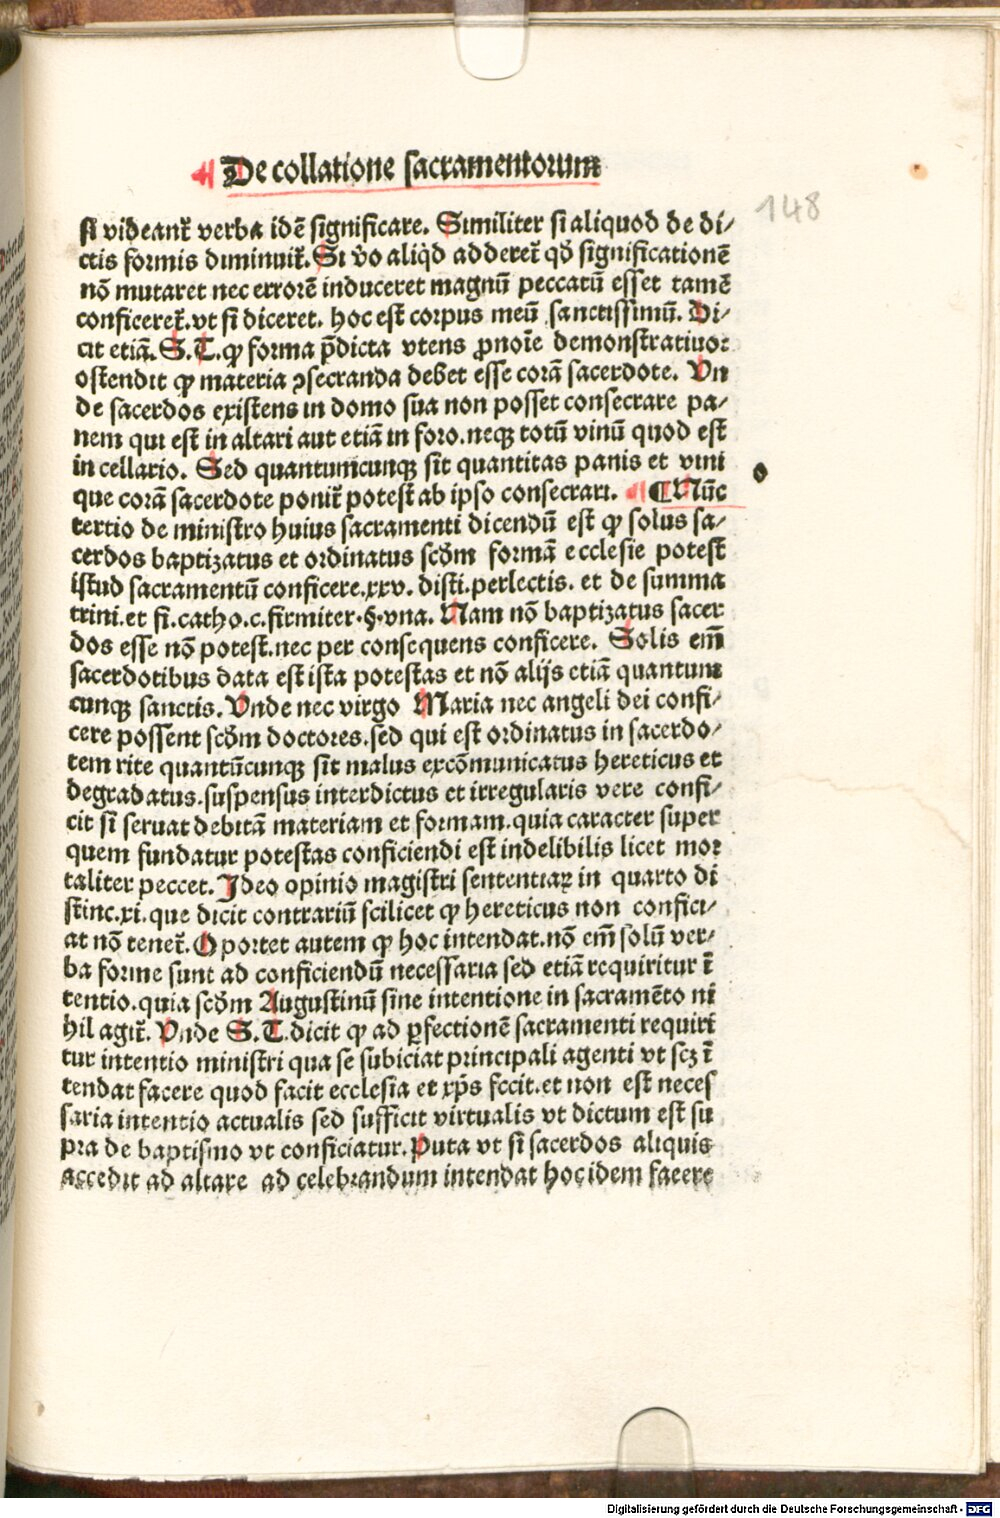 De collatione sacramentorum
148
si videant᷑ verba idē significare. Similiter si aliquod de di⸗
ctis formis diminuit᷑. Si v̄o aliq̇d adderet᷑ qd̄ significationē
nō mutaret nec errorē induceret magnū peccatū esset tamē
conficeret᷑. vt si diceret. hoc est corpus meū sanctissimū. Di⸗
cit etiā. S. T. ꝙ forma p̄dicta vtens ꝓnoīe demonstratiuo:
ostendit ꝙ materia ꝯsecranda debet esse corā sacerdote. Vn
de sacerdos existens in domo sua non posset consecrare pa⸗
nem qui est in altari aut etiā in foro. neqꝫ totū vinū quod est
in cellario. Sed quantumcunqꝫ sit quantitas panis et vini
que corā sacerdote ponit᷑ potest ab ipso consecrari. ¶ Nūc
tertio de ministro huius sacramenti dicendū est ꝙ solus sa⸗
cerdos baptizatus et ordinatus scd̄m formā ecclesie potest
istud sacramentū conficere. xxv. disti. perlectis. et de summa
trini. et fi. catho. c. firmiter. §. vna. Nam nō baptizatus sacer
dos esse nō potest. nec per consequens conficere. Solis em̄
sacerdotibus data est ista potestas et nō alijs etiā quantum
cunqꝫ sanctis. Vnde nec virgo Maria nec angeli dei confi⸗
cere possent scd̄m doctores. sed qui est ordinatus in sacerdo⸗
tem rite quantūcunqꝫ sit malus excōmunicatus hereticus et
degradatus. suspensus interdictus et irregularis vere confi⸗
cit si seruat debitā materiam et formam. quia caracter super
quem fundatur potestas conficiendi est indelibilis licet mor
taliter peccet. Ideo opinio magistri sententiaꝝ in quarto di
stinc. xi. que dicit contrariū scilicet ꝙ hereticus non confici⸗
at nō tenet᷑. Oportet autem ꝙ hoc intendat. nō em̄ solū ver⸗
ba forme sunt ad conficiendū necessaria sed etiā requiritur ī
tentio. quia scd̄m Augustinū sine intentione in sacramēto ni
hil agit᷑. Vnde S. T. dicit ꝙ ad ꝑfectionē sacramenti requiri
tur intentio ministri qua se subiciat principali agenti vt scꝫ ī
tendat facere quod facit ecclesia et xp̄s fecit. et non est neces
saria intentio actualis sed sufficit virtualis vt dictum est su
pra de baptismo vt conficiatur. Puta vt si sacerdos aliquis
accedit ad altare ad celebrandum intendat hoc idem facere
Digitalisierung gefördert durch die Deutsche Forschungsgemeinschaft - DFG